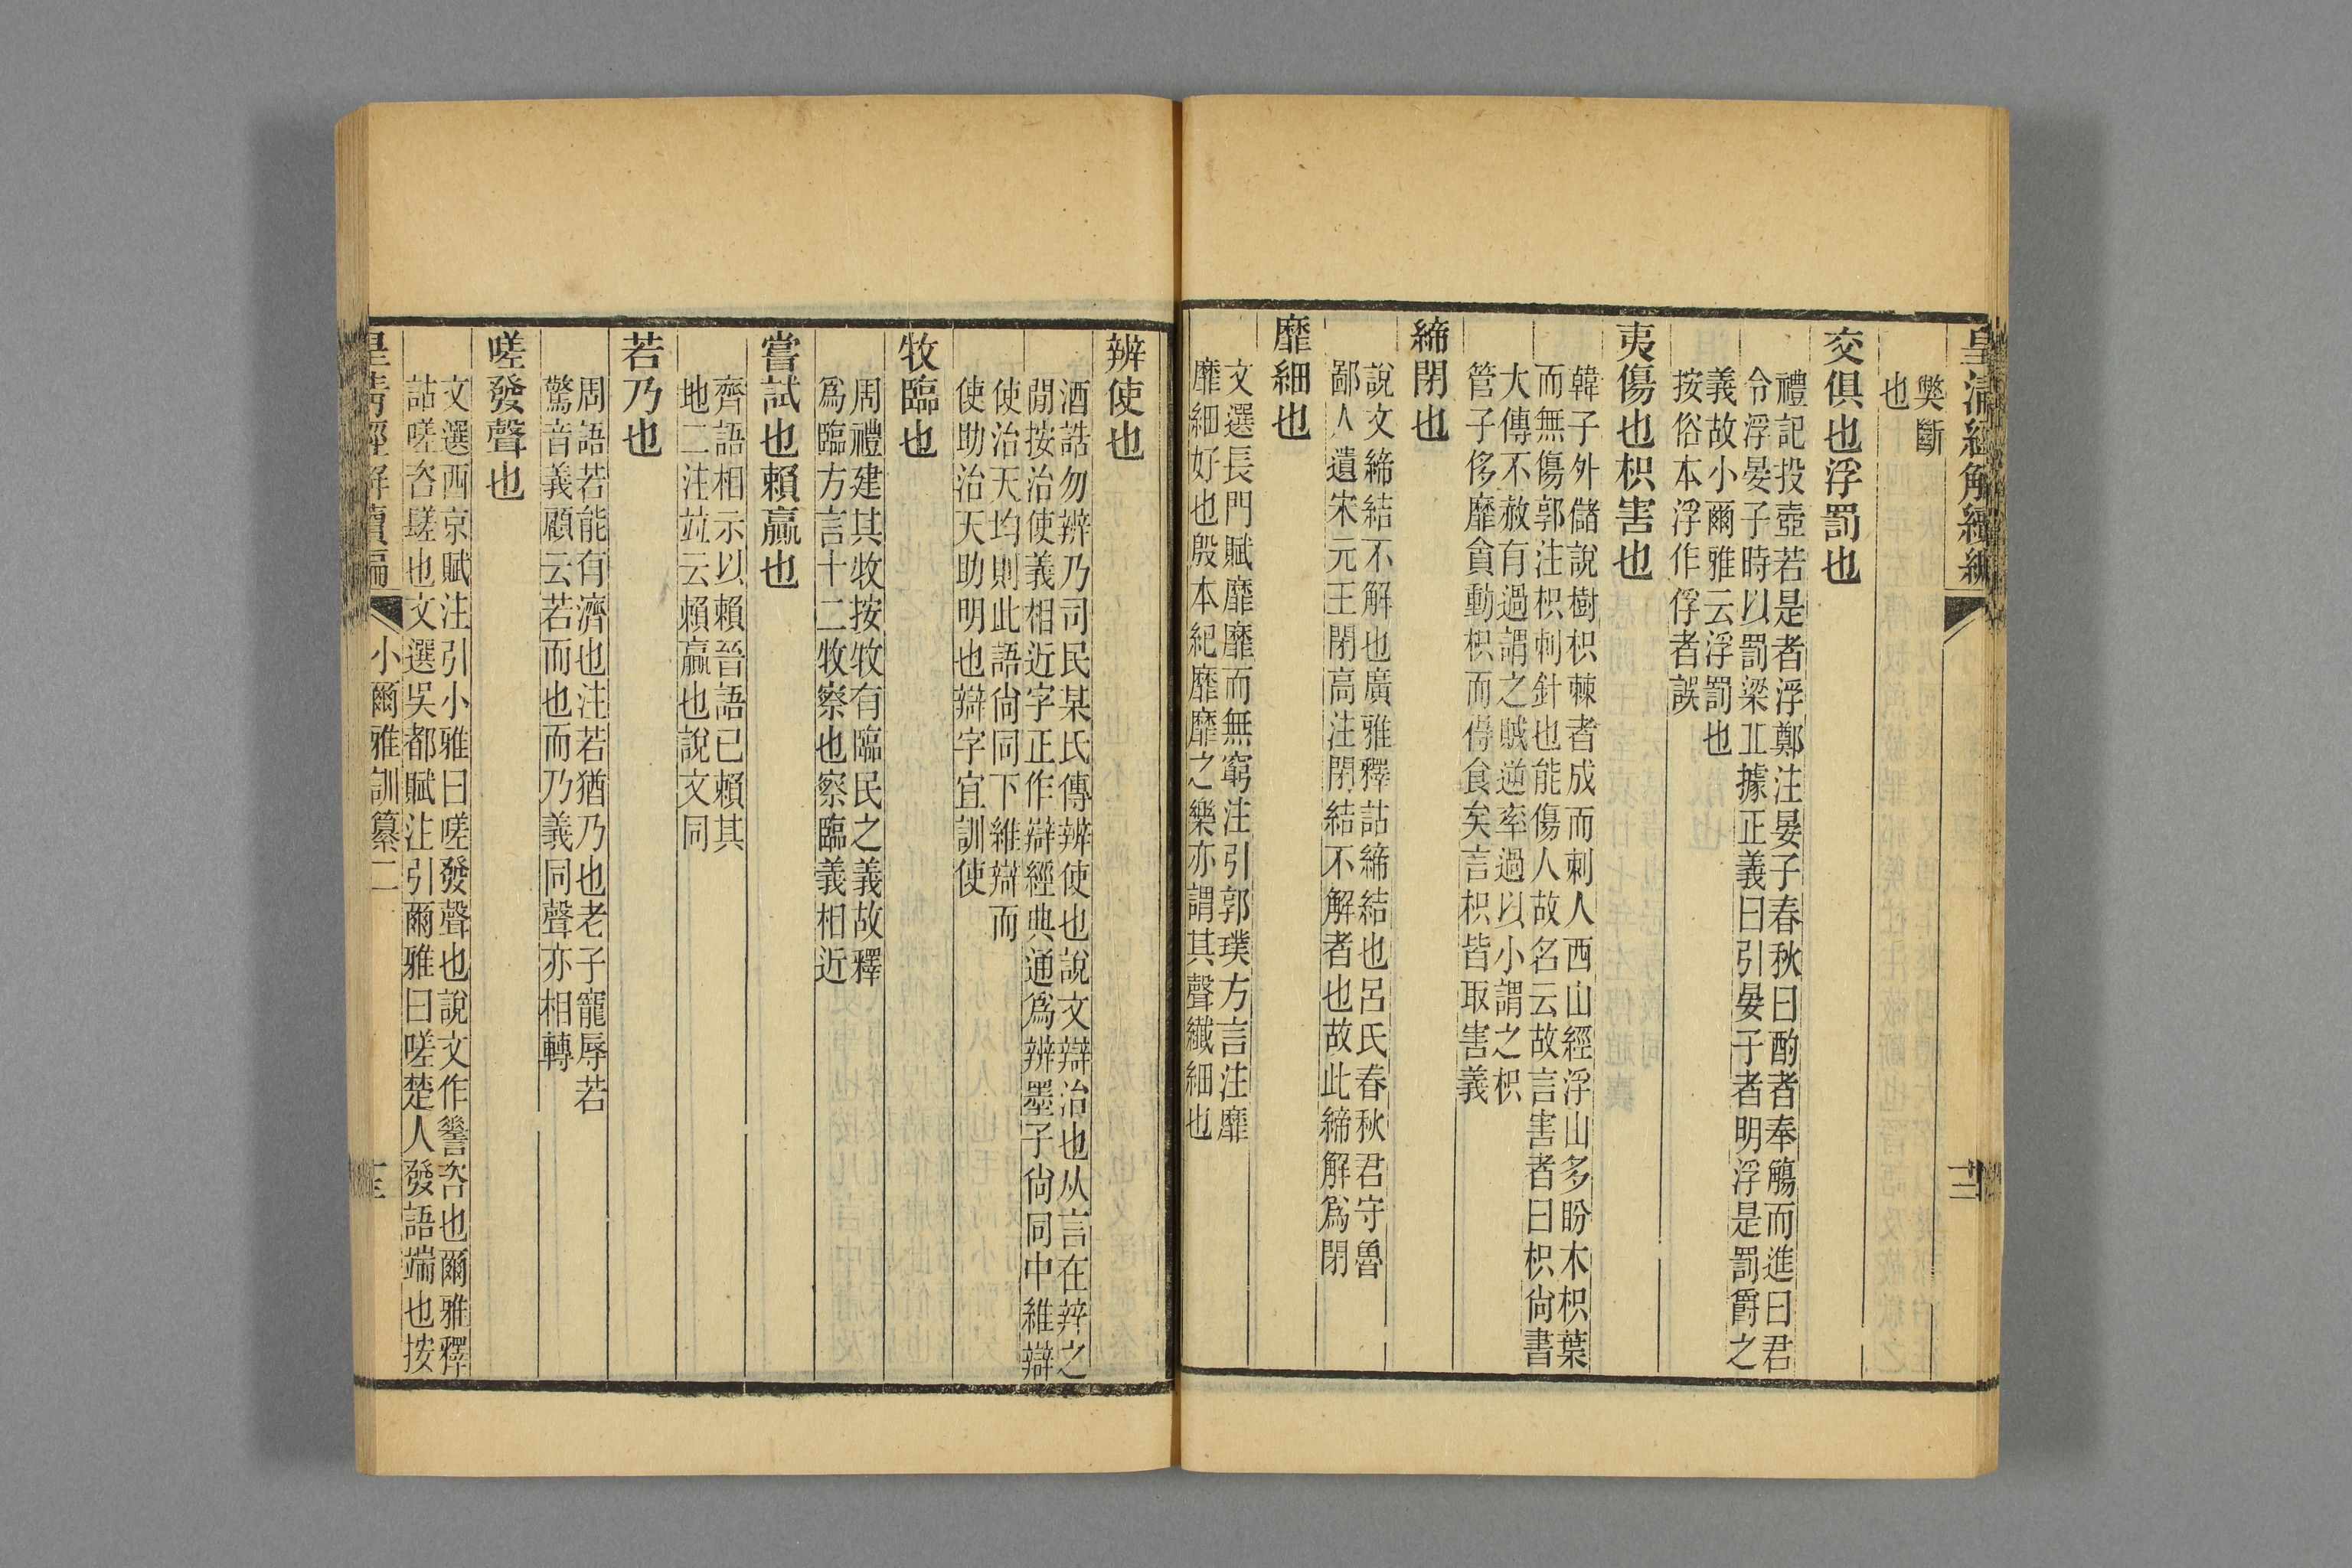 皇清經解續編
獘斷
也
交俱也浮罰也
禮記投壺若是者浮鄭注晏子春秋曰酌者奉觴而進曰君
令浮晏子時以罰梁丘據正義曰引晏子者明浮是罰爵之
義故小爾雅云浮罰也
按俗本浮作俘者誤
夷傷也枳害也
韓子外儲說樹枳棘者成而刺人西山經浮山多盼木枳葉
而無傷郭注枳刺針也能傷人故名云故言害者曰枳尙書
大傳不赦有過謂之賊逆率過以小謂之枳
管子侈靡貪動枳而得食矣言枳皆取害義
締閉也
說文締結不解也廣雅釋詁締結也呂氏春秋君守魯
鄙人遺宋元王閉高注閉結不解者也故此締解爲閉
靡細也
文選長門賦靡靡而無窮注引郭璞方言注靡
靡細好也殷本紀靡靡之樂亦謂其聲纖細也
辨使也
酒誥勿辨乃司民某氏傳辨使也說文辯治也从言在辡之
閒按治使義相近字正作辯經典通爲辨墨子尙同中維辯
使治天均則此語尙同下維辯而
使助治天助明也辯字宜訓使
牧臨也
周禮建其牧按牧有臨民之義故釋
爲臨方言十二牧察也察臨義相近
嘗試也賴贏也
齊語相示以賴晉語已賴其
地二注竝云賴贏也說文同
若乃也
周語若能有濟也注若猶乃也老子寵辱若
驚音義顧云若而也而乃義同聲亦相轉
嗟發聲也
文選西京賦注引小雅曰嗟發聲也說文作䜅咨也爾雅釋
詁嗟咨䰈也文選吳都賦注引爾雅曰嗟楚人發語端也按
皇清經解續編
小爾雅訓纂二